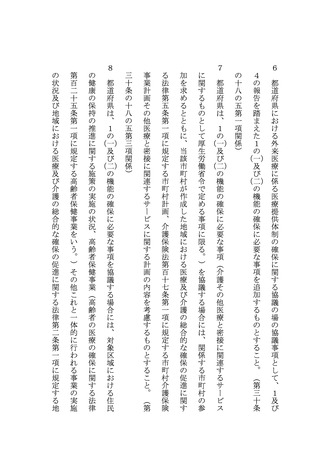 ６　都道府県における外来医療に係る医療提供体制の確保に関する協議の場の協議事項として、１及び
４の報告を踏まえた１の㈠及び㈡の機能の確保に必要な事項を追加するものとすること。（第三十条
の十八の五第一項関係）
７　都道府県は、１の㈠及び㈡の機能の確保に必要な事項（介護その他医療と密接に関連するサービス
に関するものとして厚生労働省令で定める事項に限る。）を協議する場合には、関係する市町村の参
加を求めるとともに、当該市町村が作成した地域における医療及び介護の総合的な確保の促進に関す
る法律第五条第一項に規定する市町村計画、介護保険法第百十七条第一項に規定する市町村介護保険
事業計画その他医療と密接に関連するサービスに関する計画の内容を考慮するものとすること。（第
三十条の十八の五第三項関係）
８　都道府県は、１の㈠及び㈡の機能の確保に必要な事項を協議する場合には、対象区域における住民
の健康の保持の推進に関する施策の実施の状況、高齢者保健事業（高齢者の医療の確保に関する法律
第百二十五条第一項に規定する高齢者保健事業をいう。）その他これと一体的に行われる事業の実施
の状況及び地域における医療及び介護の総合的な確保の促進に関する法律第二条第一項に規定する地